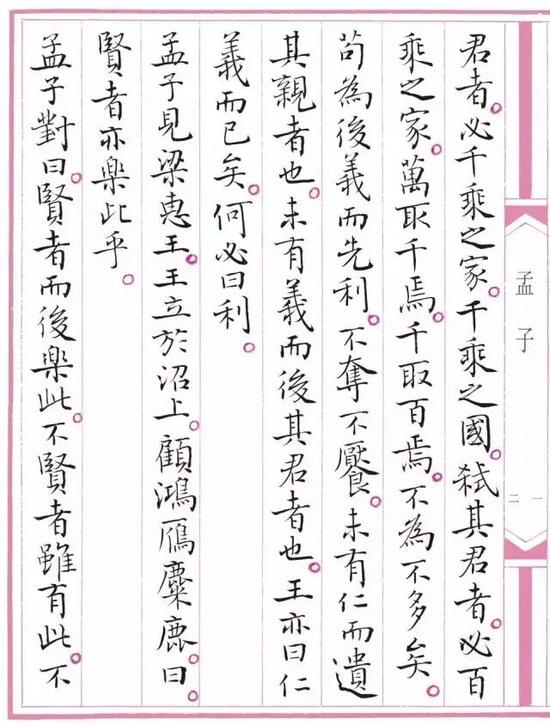 孟子
一
二
君者。必千乘之家。千乘之國。弑其君者。必百
乘之家。萬取千焉。千取百焉。不為不多矣。
苟為後義而先利。不奪不饜。未有仁而遺
其親者也。未有義而後其君者也。王亦曰仁
義而已矣。何必曰利。
孟子見梁惠王。王立於沼上。顧鴻鴈麋鹿。曰。
賢者亦樂此乎。
孟子對曰。賢者而後樂此。不賢者雖有此。不